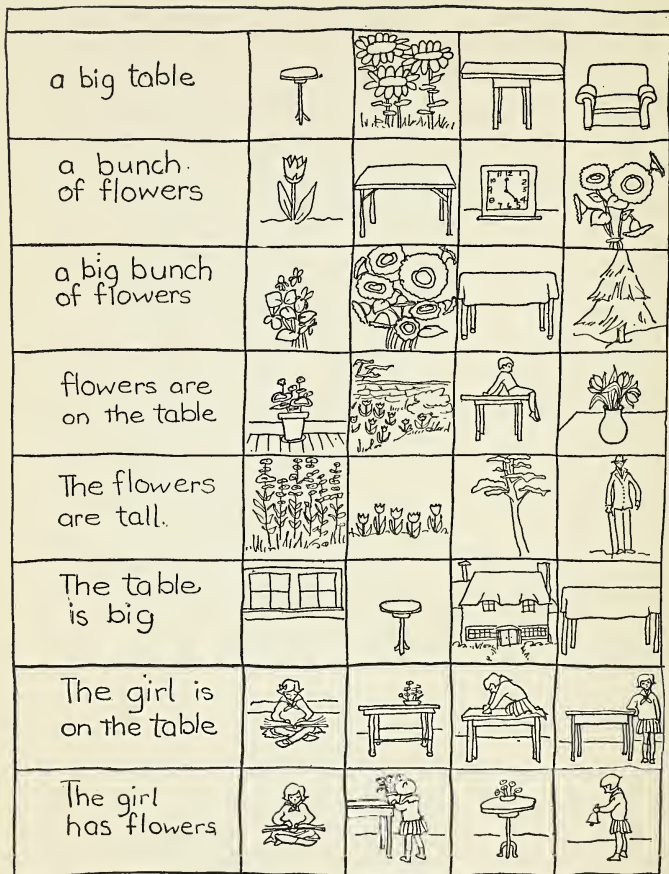 a big table
a bunch
of flowers
a big bunch
of flowers
flowers are
on the table
The flowers
are tall.
The table
is big
The girl is
on the table
The girl
has flowers